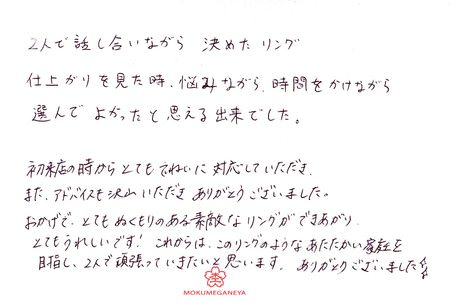 2人で話し合いながら 決めたリング
仕上がりを見た時、悩みながら、時間をかけながら
選んでよかったと思える出来でした。
初来店の時からとてもていねいに対応していただき、
また、アドバイスも沢山いただき ありがとうございました。
おかげで、とてもぬくもりのある素敵なリングができあがり、
とてもうれしいです! これからは、このリングのような あたたかい家庭を
目指し、2人で頑張っていきたいと思います。 ありがとうございました
MOKUMEGANEYA